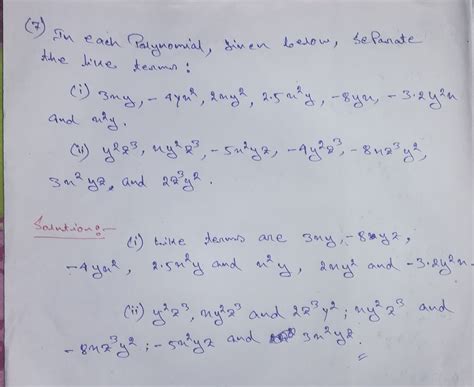 (7) In each Polynomial, given below, separate
the like terms:
(i) 3xy, -4yx², 2xy², 2.5x²y, -8yx, -3.2y²x
and x²y.
(ii) y²z³, xy²z³, -5x²yz, -4y²z³, -8xz³y²,
3x²yz, and 2z³y².
Solution:-
(i) Like terms are 3xy, -8xyz,
-4yx², 2.5x²y and x²y, 2xy² and -3.2y²x
(ii) y²z³, xy²z³ and 2z³y²; xy²z³ and
-8xz³y²; -5x²yz and 3x²yz.